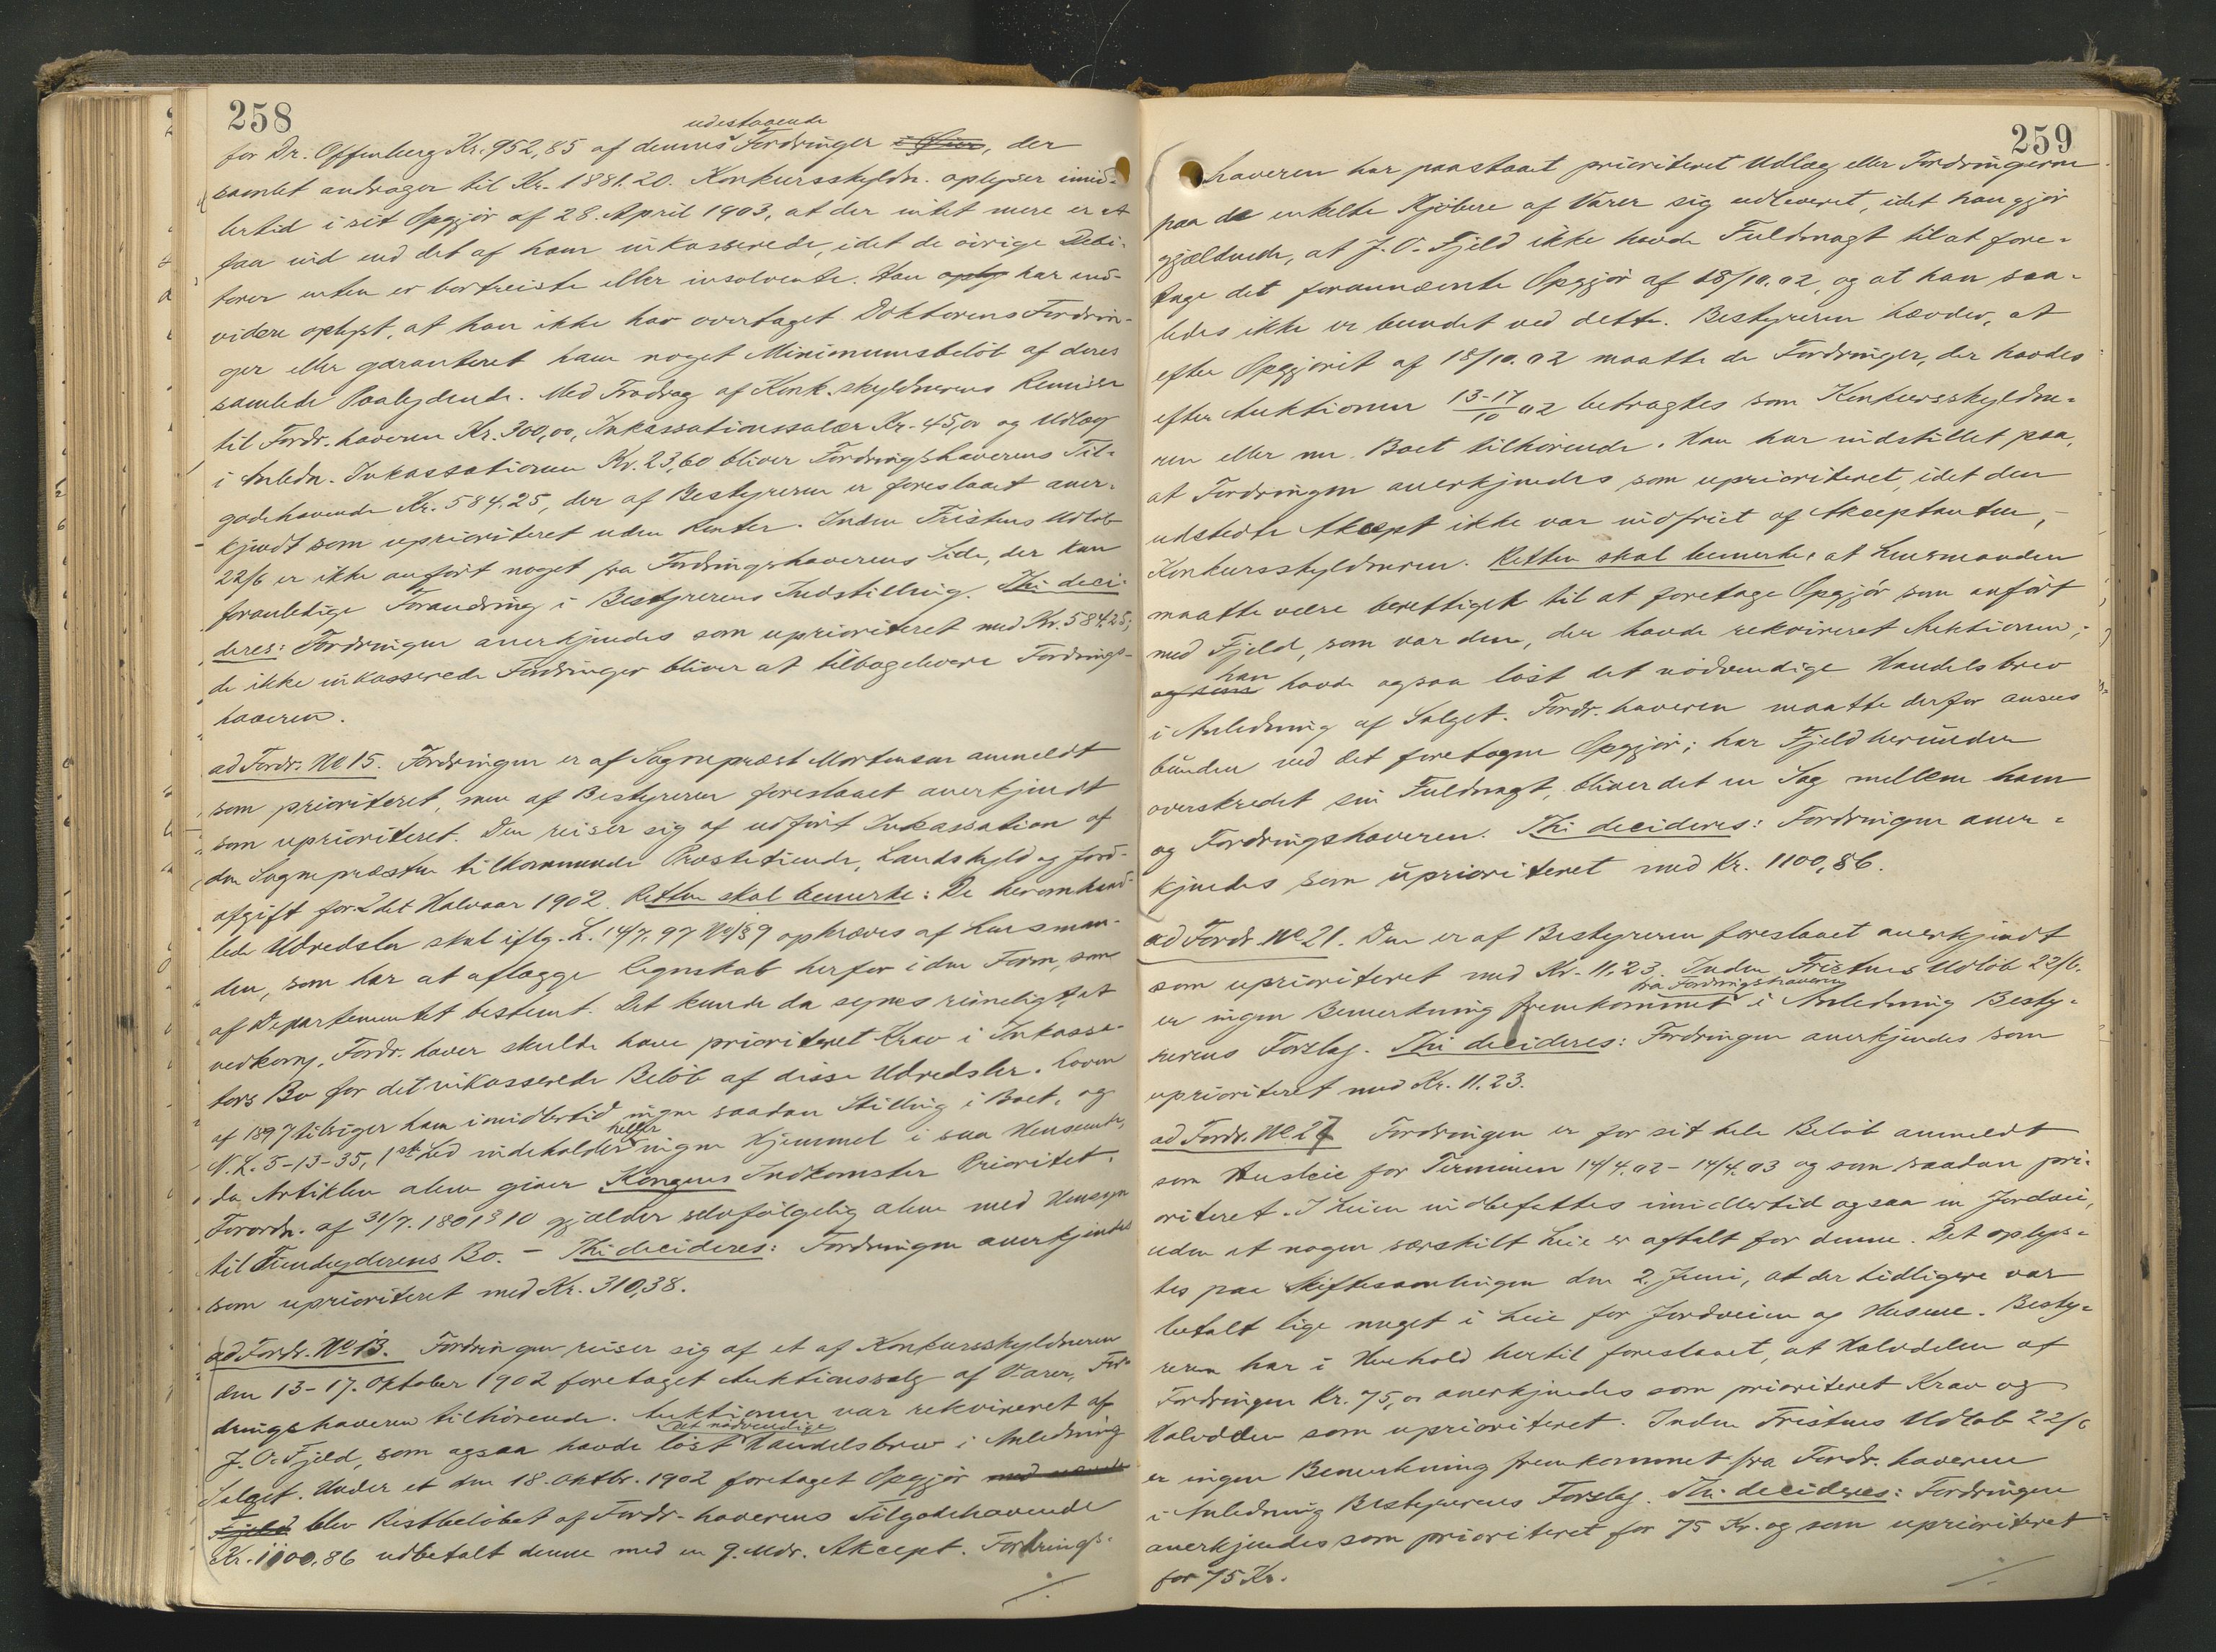 258
udestaaende
for Dr. Offenberg Kr. 952,85 af dennes Fordringer, der
samlet andrager til Kr. 1881.20. Konkursskyldn. oplyser imid-
lertid i sit Opgjør af 28. April 1903, at der intet mere er at
faa ind end det af ham inkasserede, idet de øvrige Debi-
torer enten er bortreiste eller insolvente. Han oply har end-
videre oplyst, at han ikke har overtaget Doktorens Fordrin-
ger eller garanteret ham noget Minimumsbeløb af deres
samlede Paalydende. Med Fradrag af Konk.skyldnerens Remisse
til Fordr.haveren Kr. 300,00, Inkassationssalær Kr. 45,00 og Udlæg
i Anledn. Inkassationen Kr. 23,60 bliver Fordringshaverens Til-
godehavende Kr. 584.25, der af Bestyreren er foreslaaet aner-
kjendt som uprioriteret uden Renter. Inden Fristens Udløb
22/6 er ikke anført noget fra Fordringshaverens Side, der kan
foranledige Forandring i Bestyrerens Indstilling. Thi deci-
deres: Fordringen anerkjendes som uprioriteret med Kr. 584.25;
de ikke inkasserede Fordringer bliver at tilbagelevere Fordrings-
haveren.
ad Fordr. No 15. Fordringen er af Sogneprest Mortensen anmeldt
som prioriteret, men af Bestyreren foreslaaet anerkjendt
som uprioriteret. Den reiser sig af udført Inkassation af
den Sognepræsten tilkommende Præstetiende, Landskyld og Jord-
afgift for 2det Halvaar 1902. Retten skal bemerke: De heromhand-
lede Udredsler skal iflg. L. 14/7. 97 No 1 § 9 opkræves af Lensman-
den, som har at aflægge Regnskab herfor i den Form, som
af Departementet bestemt. Det kunde da synes rimeligt, at
vedkom. Fordr.haver skulde have prioriteret Krav i Inkassa-
tors Bo for det inkasserede Beløb af disse Udredsler. Loven
af 1897 tilsiger ham imidlertid ingen saadan Stilling i Boet, og
heller
N. L. 5-13-35, 1ste Led indeholder ingen Hjemmel i saa Henseende,
da Artiklen alene giver Kongens Indkomster Prioritet.
Forordn. af 31/7. 1801 § 10 gjælder selvfølgelig alene med Hensyn
til Tiendeyderens Bo. – Thi decideres: Fordringen anerkjendes
som uprioriteret med Kr. 310,38.
ad Fordr. No 13. Fordringen reiser sig af et af Konkursskyldneren
den 13-17. Oktober 1902 foretaget Auktionssalg af Varer, For-
dringshaveren tilhørende. Auktionen var rekvireret af
det nødvendige
J. O. Fjeld, som ogsaa havde løst Handelsbrev i Anledning
Salget. Under et den 18. Oktbr. 1902 foretaget Opgjør med nævnte
Fjeld blev Restbeløbet af Fordr.haverens Tilgodehavende
Kr. 1100,86 udbetalt denne med en 9. Mdr. Akcept. Fordrings-
./.
259
haveren har paastaaet prioriteret Udlæg eller Fordringerne
paa de enkelte Kjøbere af Varer sig udleveret, idet han gjør
gjældende, at J. O. Fjeld ikke havde Fuldmagt til at fore-
tage det forannævnte Opgjør af 18/10.02, og at han saa-
ledes ikke er bundet ved dette. Bestyreren hævder, at
efter Opgjøret af 18/10.02 maatte de Fordringer, der havdes
efter Auktionen 13-17/10 02 betragtes som Konkursskyldne-
ren eller nu Boet tilhørende. Han har indstillet paa,
at Fordringen anerkjendes som uprioriteret, idet den
udstedte Akcept ikke var indfriet af Akceptanten, –
Konkursskyldneren. Retten skal bemerke, at Lensmanden
maatte være berettiget til at foretage Opgjør som anført
med Fjeld, som var den, der havde rekvireret Auktionen;
han
og havde ogsaa løst det nødvendige Handelsbrev
i Anledning af Salget. Fordr.haveren maatte derfor ansees
bunden ved det foretagne Opgjør; har Fjeld herunder
overskredet sin Fuldmagt, bliver det en Sag mellem ham
og Fordringshaveren. Thi decideres: Fordringen aner-
kjendes som uprioriteret med Kr. 1100,86.
ad Fordr. No 21. Den er af Bestyreren foreslaaet anerkjendt
som uprioriteret med Kr. 11.23. Inden Fristens Udløb 22/6.
fra Fordringshaveren
er ingen Bemerkning fremkommet i Anledning Besty-
rerens Forslag. Thi decideres: Fordringen anerkjendes som
uprioriteret med Kr. 11.23.
ad Fordr. No 27 Fordringen er for sit hele Beløb anmeldt
som Husleie for Terminen 14/4.02 – 14/4.03 og som saadan pri-
oriteret. I Leien indbefattes imidlertid ogsaa en Jordvei,
uden at nogen særskilt Leie er aftalt for denne. Det oplys-
tes paa Skiftesamlingen den 2. Juni, at der tidligere var
betalt lige meget i Leie for Jordveien og Husene. Besty-
reren har i Henhold hertil foreslaaet, at Halvdelen af
Fordringen Kr. 75,00 anerkjendes som prioriteret Krav og
Halvdelen som uprioriteret. Inden Fristens Udløb 22/6
er ingen Bemerkning fremkommet fra Fordr.haveren
i Anledning Bestyrerens Forslag. Thi decideres: Fordringen
anerkjendes som prioriteret for 75 Kr. og som uprioriteret
for 75 Kr.
./.